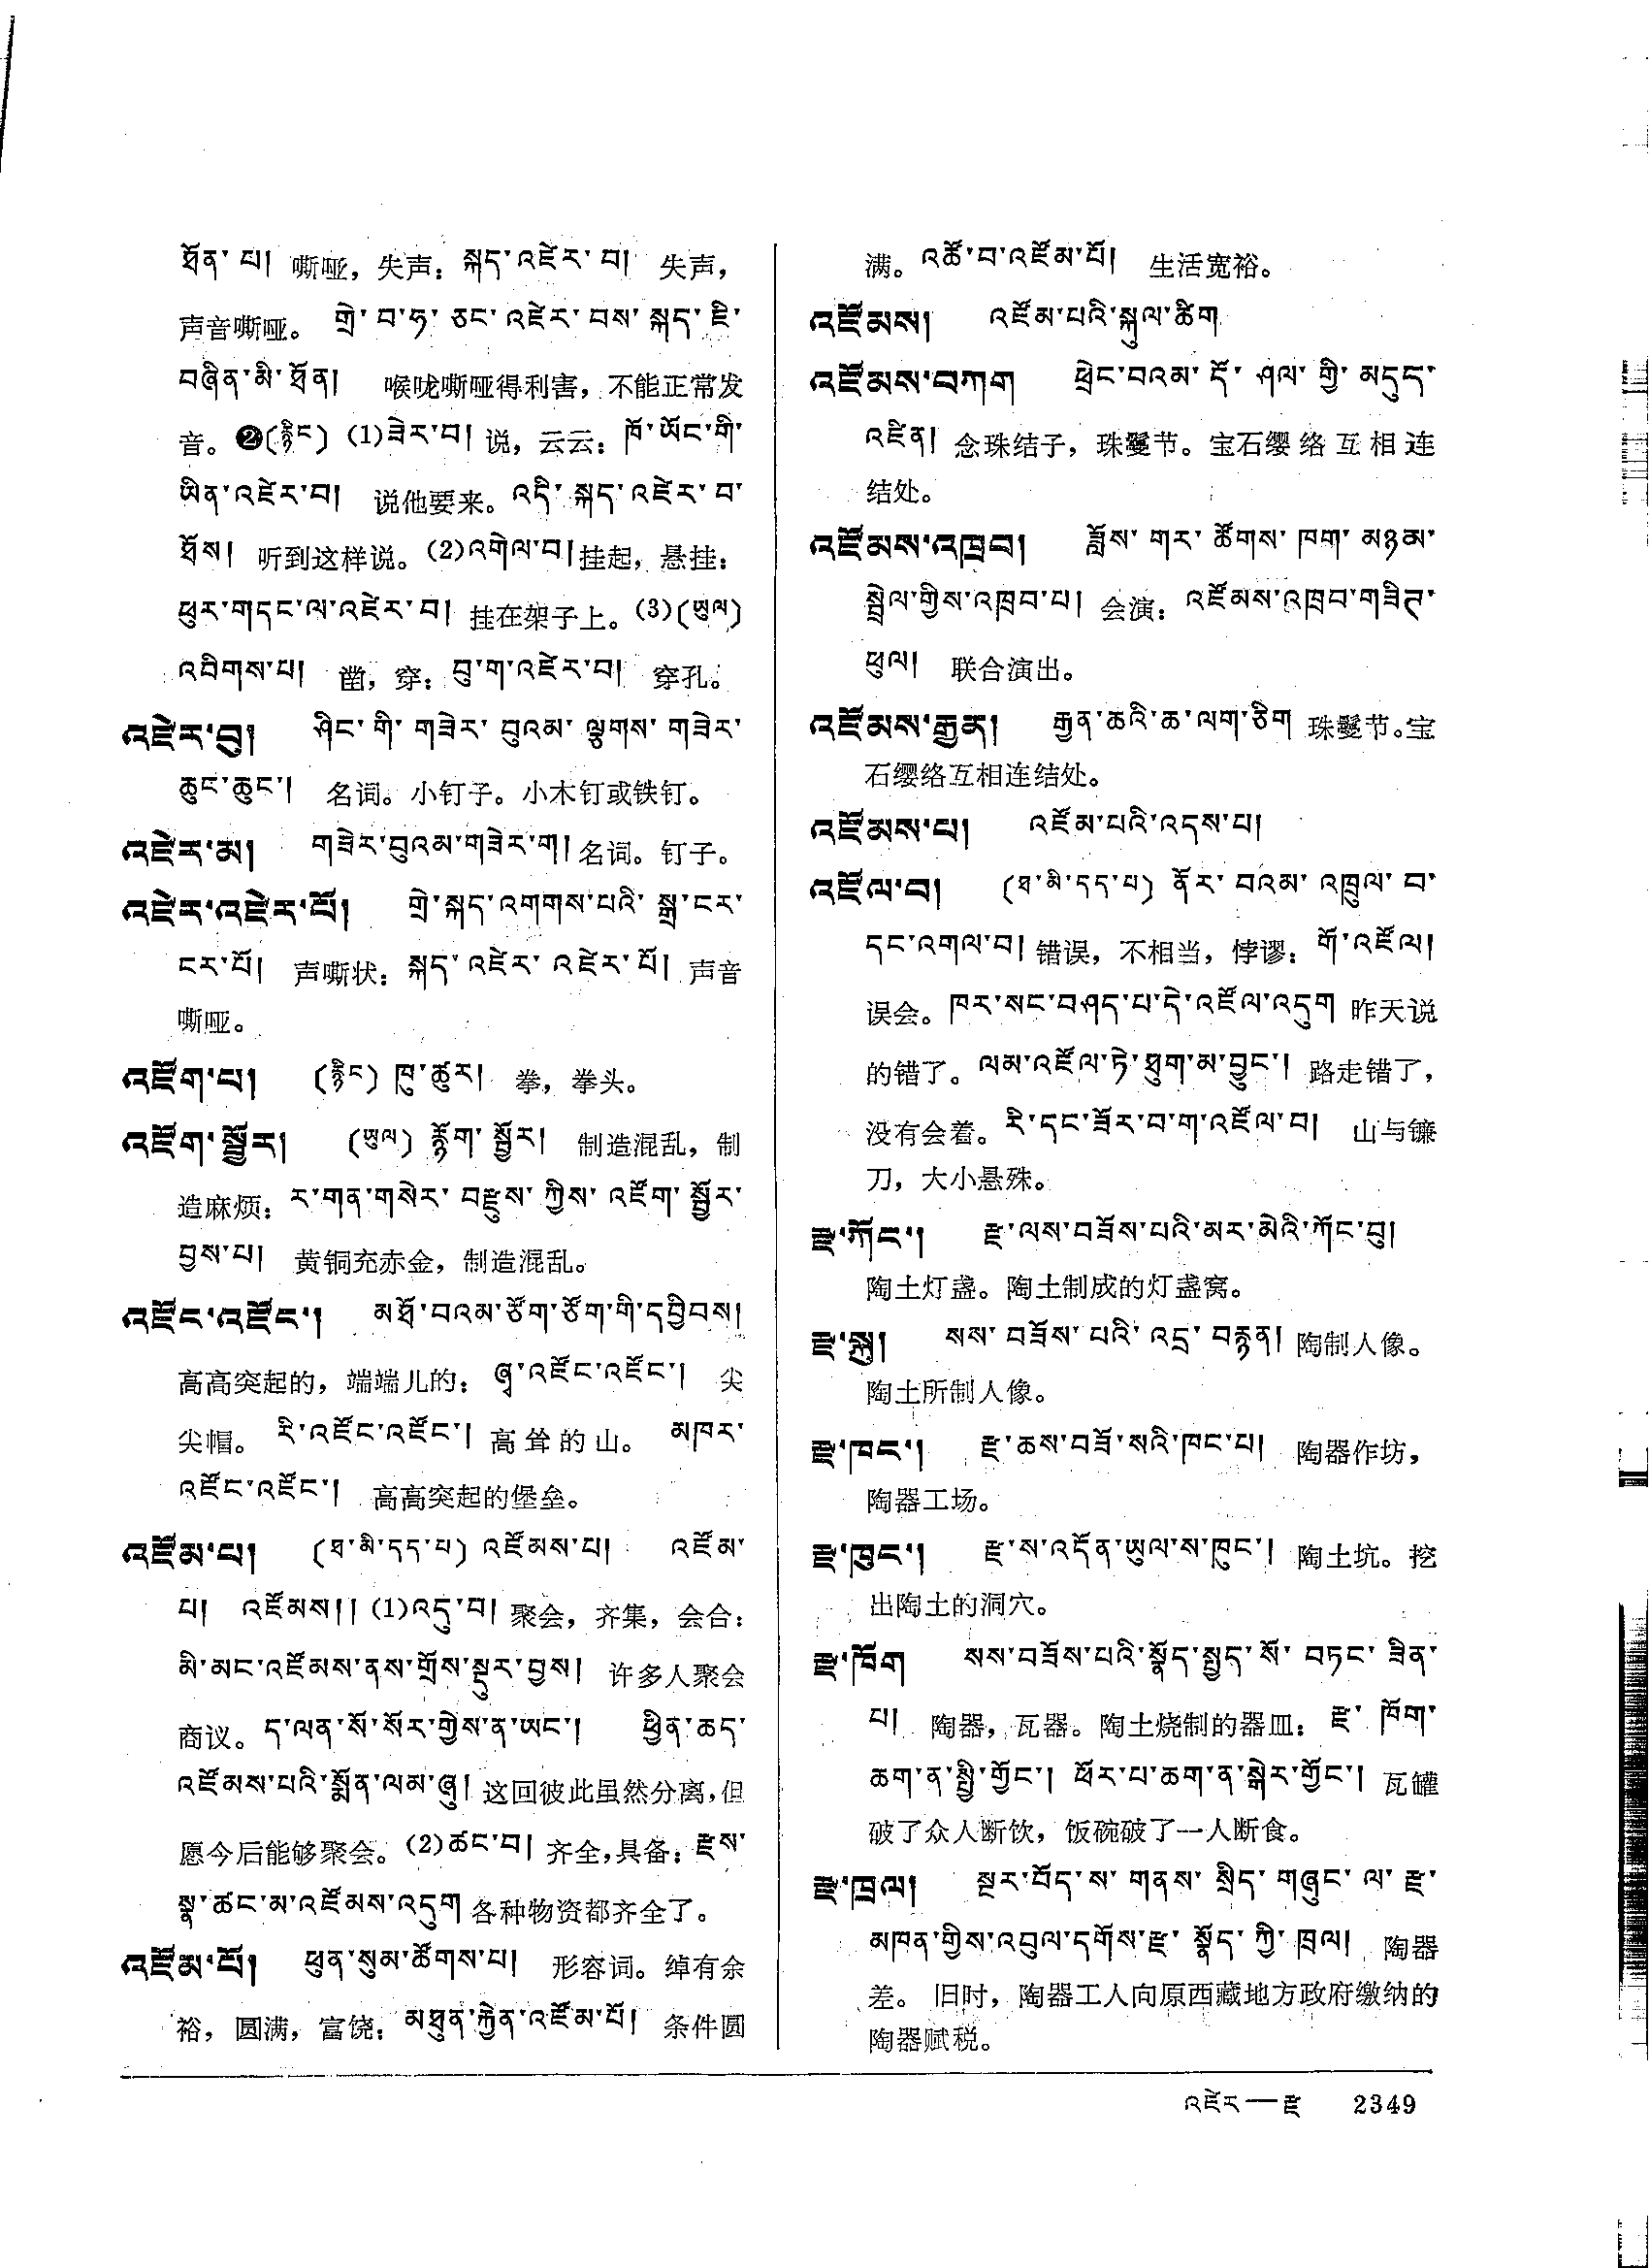 ཐོན་པ། 嘶哑，失声：སྐད་འཛེར་བ། 失声，
声音嘶哑。 གྲེ་བ་ཧ་ཅང་འཛེར་བས་སྐད་ཇི་
བཞིན་མི་ཐོན། 喉咙嘶哑得利害，不能正常发
音。❷(རྙིང) (1)ཟེར་བ། 说，云云：ཁོ་ཡོང་གི་
ཡིན་འཛེར་བ། 说他要来。འདི་སྐད་འཛེར་བ་
ཐོས། 听到这样说。(2)འགེལ་བ།挂起，悬挂：
ཕུར་གདང་ལ་འཛེར་བ། 挂在架子上。(3)(ཡུལ)
འབིགས་པ། 凿，穿：བུ་ག་འཛེར་བ། 穿孔。
འཛེར་བུ། ཤིང་གི་གཟེར་བུའམ་ལྕགས་གཟེར་
ཆུང་ཆུང་། 名词。小钉子。小木钉或铁钉。
འཛེར་མ། གཟེར་བུའམ་གཟེར་ག། 名词。钉子。
འཛེར་འཛེར་པོ། གྲེ་སྐད་འགགས་པའི་སྒྲ་ངར་
ངར་པོ། 声嘶状：སྐད་འཛེར་འཛེར་པོ། 声音
嘶哑。
འཛོག་པ། (རྙིང) ཁུ་ཚུར། 拳，拳头。
འཛོག་སྦྱོར། (ཡུལ) རྙོག་སྦྱོར། 制造混乱，制
造麻烦：ར་གན་གསེར་བརྫུས་ཀྱིས་འཛོག་སྦྱོར་
བྱས་པ། 黄铜充赤金，制造混乱。
འཛོང་འཛོང་། མཐོ་བའམ་ཙོག་ཙོག་གི་དབྱིབས།
高高突起的，端端儿的：ཞྭ་འཛོང་འཛོང་། 尖
尖帽。 རི་འཛོང་འཛོང་། 高耸的山。 མཁར་
འཛོང་འཛོང་། 高高突起的堡垒。
འཛོམ་པ། (ཐ་མི་དད་པ) འཛོམས་པ། འཛོམ་
པ། འཛོམས།། (1)འདུ་བ། 聚会，齐集，会合：
མི་མང་འཛོམས་ནས་གྲོས་སྡུར་བྱས། 许多人聚会
商议。ད་ལན་སོ་སོར་གྱེས་ན་ཡང་། ཕྱིན་ཆད་
འཛོམས་པའི་སྨོན་ལམ་ཞུ། 这回彼此虽然分离，但
愿今后能够聚会。(2)ཚང་བ། 齐全，具备：རྫས་
སྣ་ཚང་མ་འཛོམས་འདུག 各种物资都齐全了。
འཛོམ་པོ། ཕུན་སུམ་ཚོགས་པ། 形容词。绰有余
裕，圆满，富饶：མཐུན་རྐྱེན་འཛོམ་པོ། 条件圆
满。འཚོ་བ་འཛོམ་པོ། 生活宽裕。
འཛོམས། འཛོམ་པའི་སྐུལ་ཚིག
འཛོམས་བཀག ཕྲེང་བའམ་དོ་ཤལ་གྱི་མདུད་
འཛིན། 念珠结子，珠鬘节。宝石缨络互相连
结处。
འཛོམས་འཁྲབ། ཟློས་གར་ཚོགས་ཁག་མཉམ་
སྦྲེལ་གྱིས་འཁྲབ་པ། 会演：འཛོམས་འཁྲབ་གཟིཊ་
ཕུལ། 联合演出。
འཛོམས་རྒྱན། རྒྱན་ཆའི་ཆ་ལག་ཅིག 珠鬘节。宝
石缨络互相连结处。
འཛོམས་པ། འཛོམ་པའི་འདས་པ།
འཛོལ་བ། (ཐ་མི་དད་པ) ནོར་བའམ་འཁྲུལ་བ་
དང་འགལ་བ། 错误，不相当，悖谬：གོ་འཛོལ།
误会。ཁར་སང་བཤད་པ་དེ་འཛོལ་འདུག 昨天说
的错了。ལམ་འཛོལ་ཏེ་ཐུག་མ་བྱུང་། 路走错了，
没有会着。རི་དང་ཟོར་བ་ག་འཛོལ་བ། 山与镰
刀，大小悬殊。
རྫ་ཀོང་། རྫ་ལས་བཟོས་པའི་མར་མེའི་ཀོང་བུ།
陶土灯盏。陶土制成的灯盏窝。
རྫ་སྐུ། སས་བཟོས་པའི་འདྲ་བརྙན། 陶制人像。
陶土所制人像。
རྫ་ཁང་། རྫ་ཆས་བཟོ་སའི་ཁང་པ། 陶器作坊，
陶器工场。
རྫ་ཁུང་། རྫ་ས་འདོན་ཡུལ་ས་ཁུང་། 陶土坑。挖
出陶土的洞穴。
རྫ་ཁོག སས་བཟོས་པའི་སྣོད་སྤྱད་སོ་བཏང་ཟིན་
པ། 陶器，瓦器。陶土烧制的器皿：རྫ་ཁོག་
ཆག་ན་སྤྱི་གྱོང་། ཕོར་པ་ཆག་ན་སྒེར་གྱོང་། 瓦罐
破了众人断饮，饭碗破了一人断食。
རྫ་ཁྲལ། སྔར་བོད་ས་གནས་སྲིད་གཞུང་ལ་རྫ་
མཁན་གྱིས་འབུལ་དགོས་རྫ་སྣོད་ཀྱི་ཁྲལ། 陶器
差。旧时，陶器工人向原西藏地方政府缴纳的
陶器赋税。
འཛེར—རྫ 2349